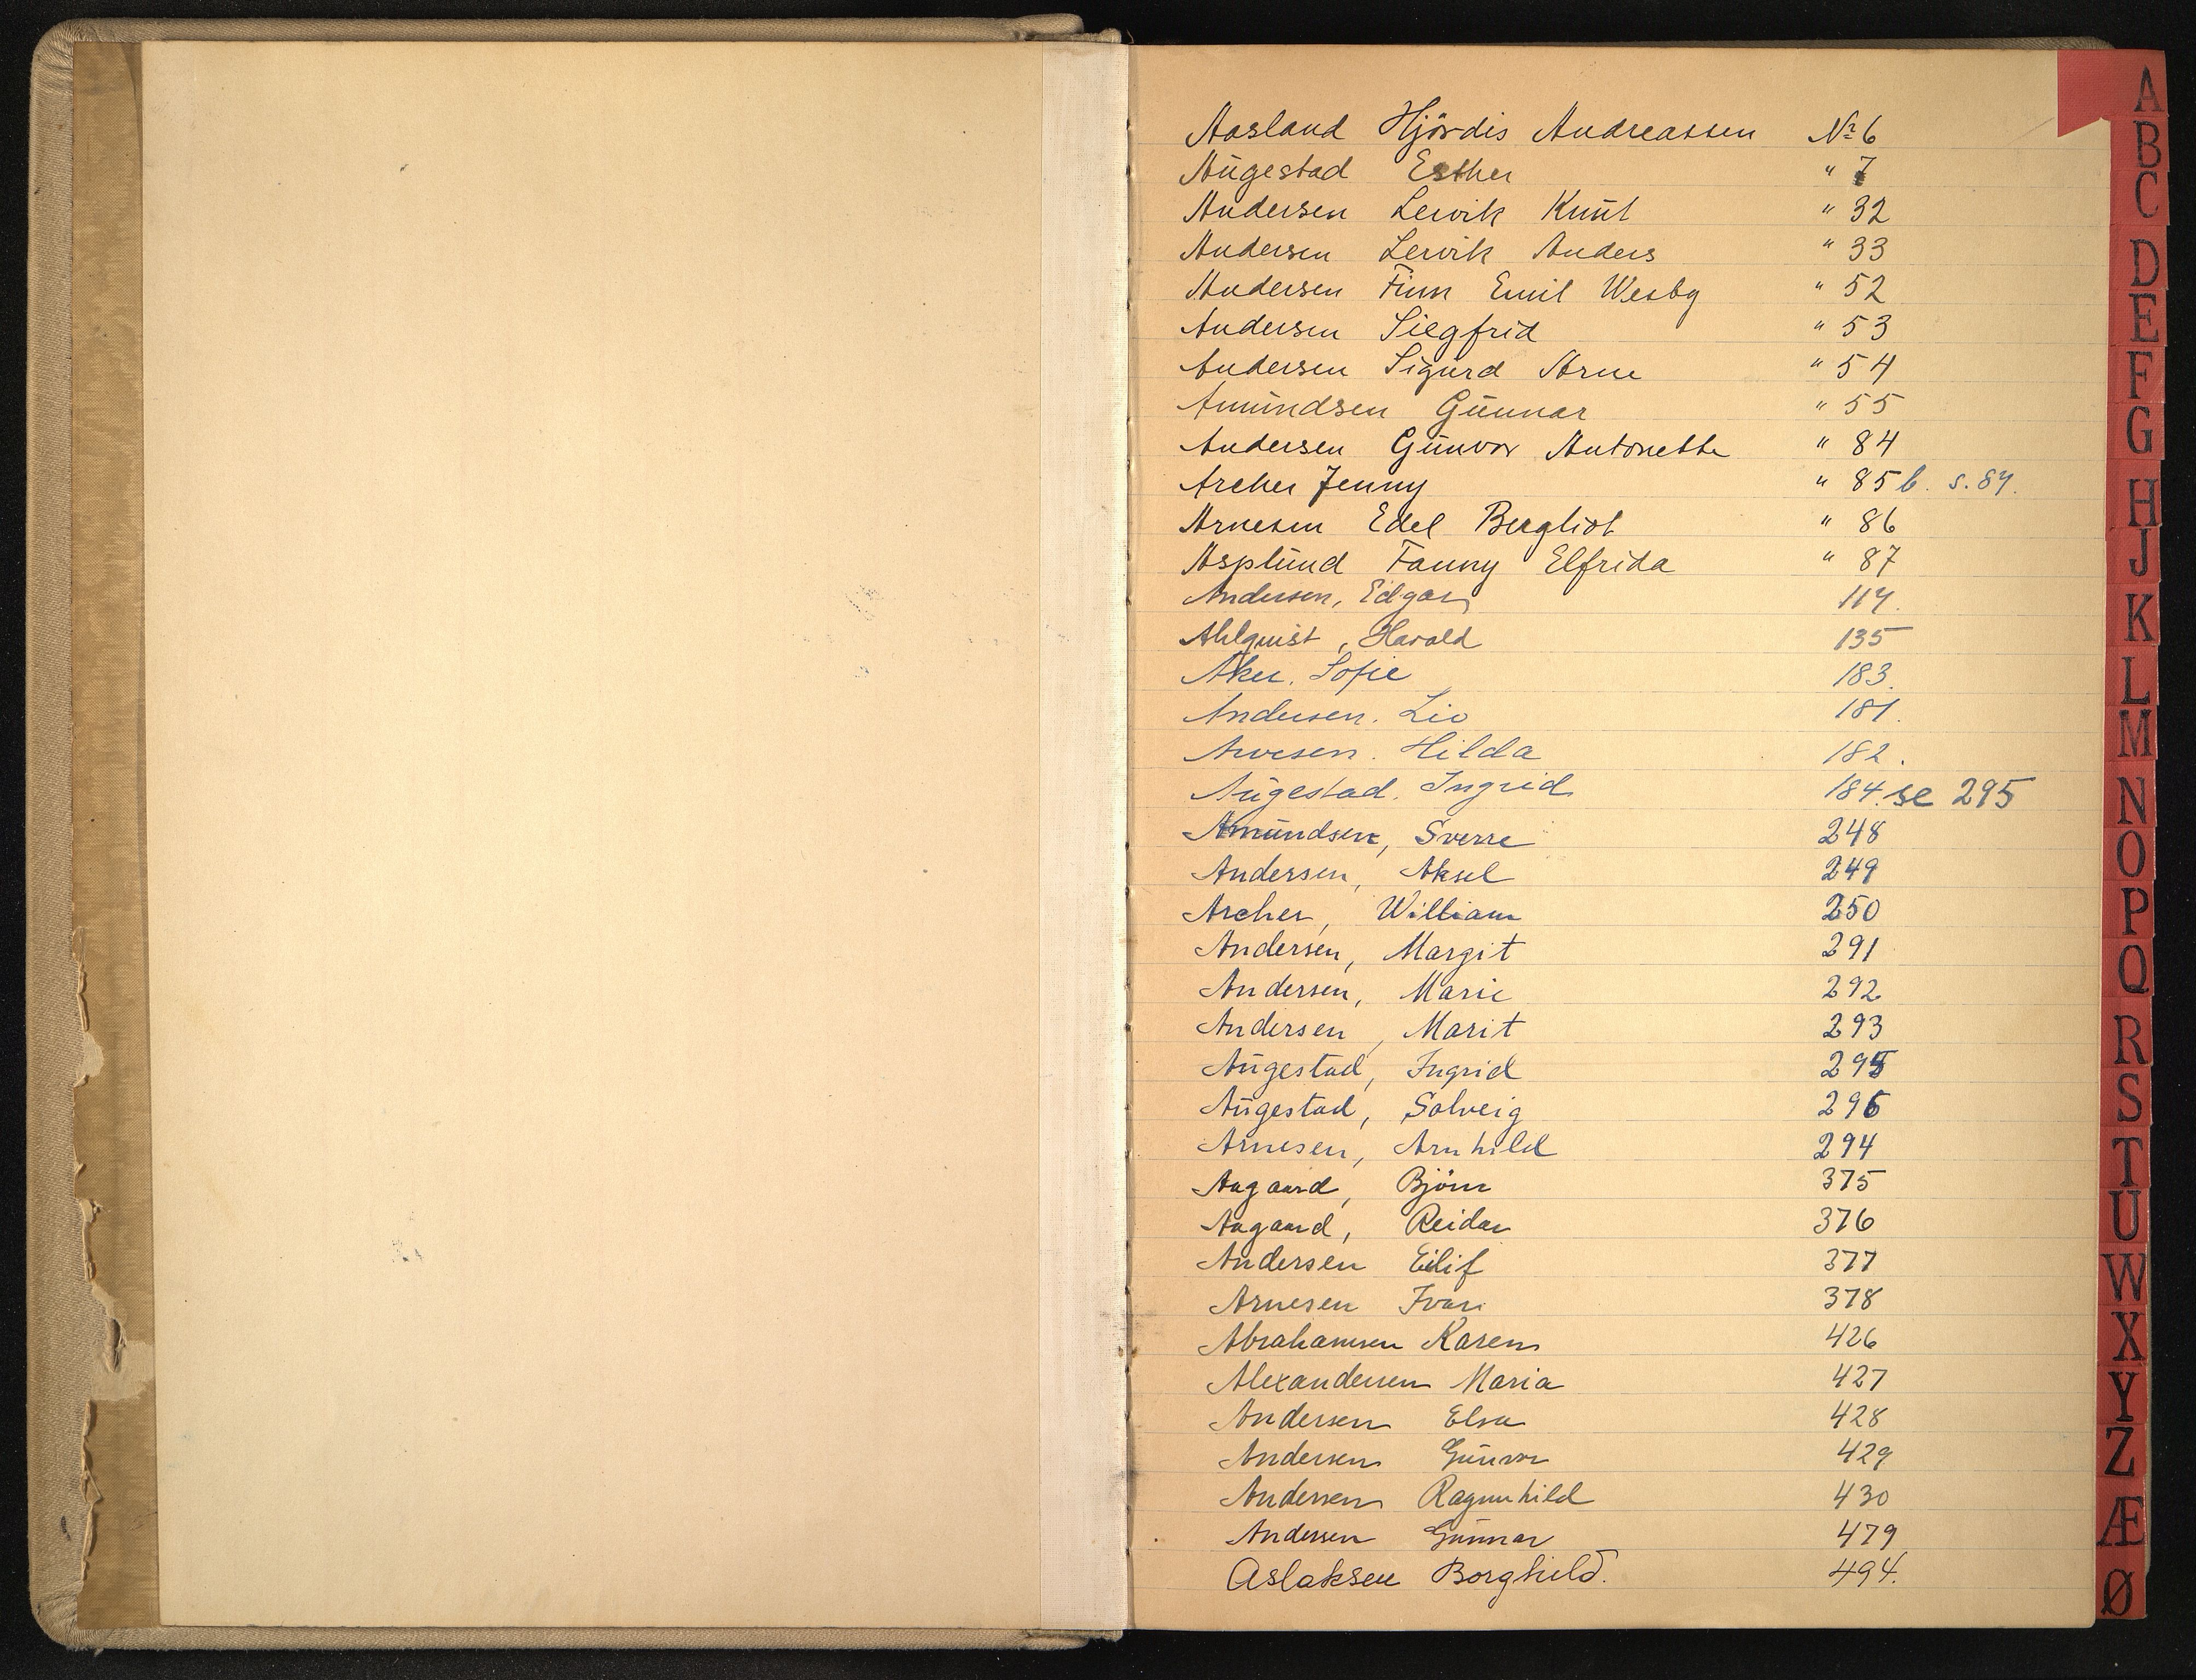 Aasland Hjördis Andreassen No 6
Augestad Esther " 7
Andersen Lervik Knut " 32
Andersen Lervik Anders " 33
Andersen Finn Emil Wesby " 52
Andersen Siegfrid " 53
Andersen Sigurd Arne " 54
Amundsen Gunnar " 55
Andersen Gunvor Antonette " 84
Archer Jenny " 85 b. s. 84.
Arnesen Edel Bergliot " 86
Asplund Fanny Elfrida " 87
Andersen, Edgar 114.
Ahlquist, Harald 135
Aker. Sofie 183.
Andersen. Liv 181.
Arvesen. Hilda 182.
Augestad. Ingrid 184. se 295
Amundsen, Sverre 248
Andersen, Aksel 249
Archer, William 250
Andersen, Margit 291
Andersen, Marie 292
Andersen, Marit 293
Augestad, Ingrid 295
Augestad, Solveig 296
Arnesen, Arnhild 294
Aagaard, Björn 375
Aagaard, Reidar 376
Andersen Eilif 377
Arnesen Ivar 378
Abrahamsen Karen 426
Alexandersen Maria 427
Andersen Elsa 428
Andersen Gunvor 429
Andersen Ragnhild 430
Andersen Gunnar 479
Aslaksen Borghild. 494.
A
B
C
D
E
F
G
H
J
K
L
M
N
O
P
Q
R
S
T
U
W
X
Y
Z
Æ
Ø